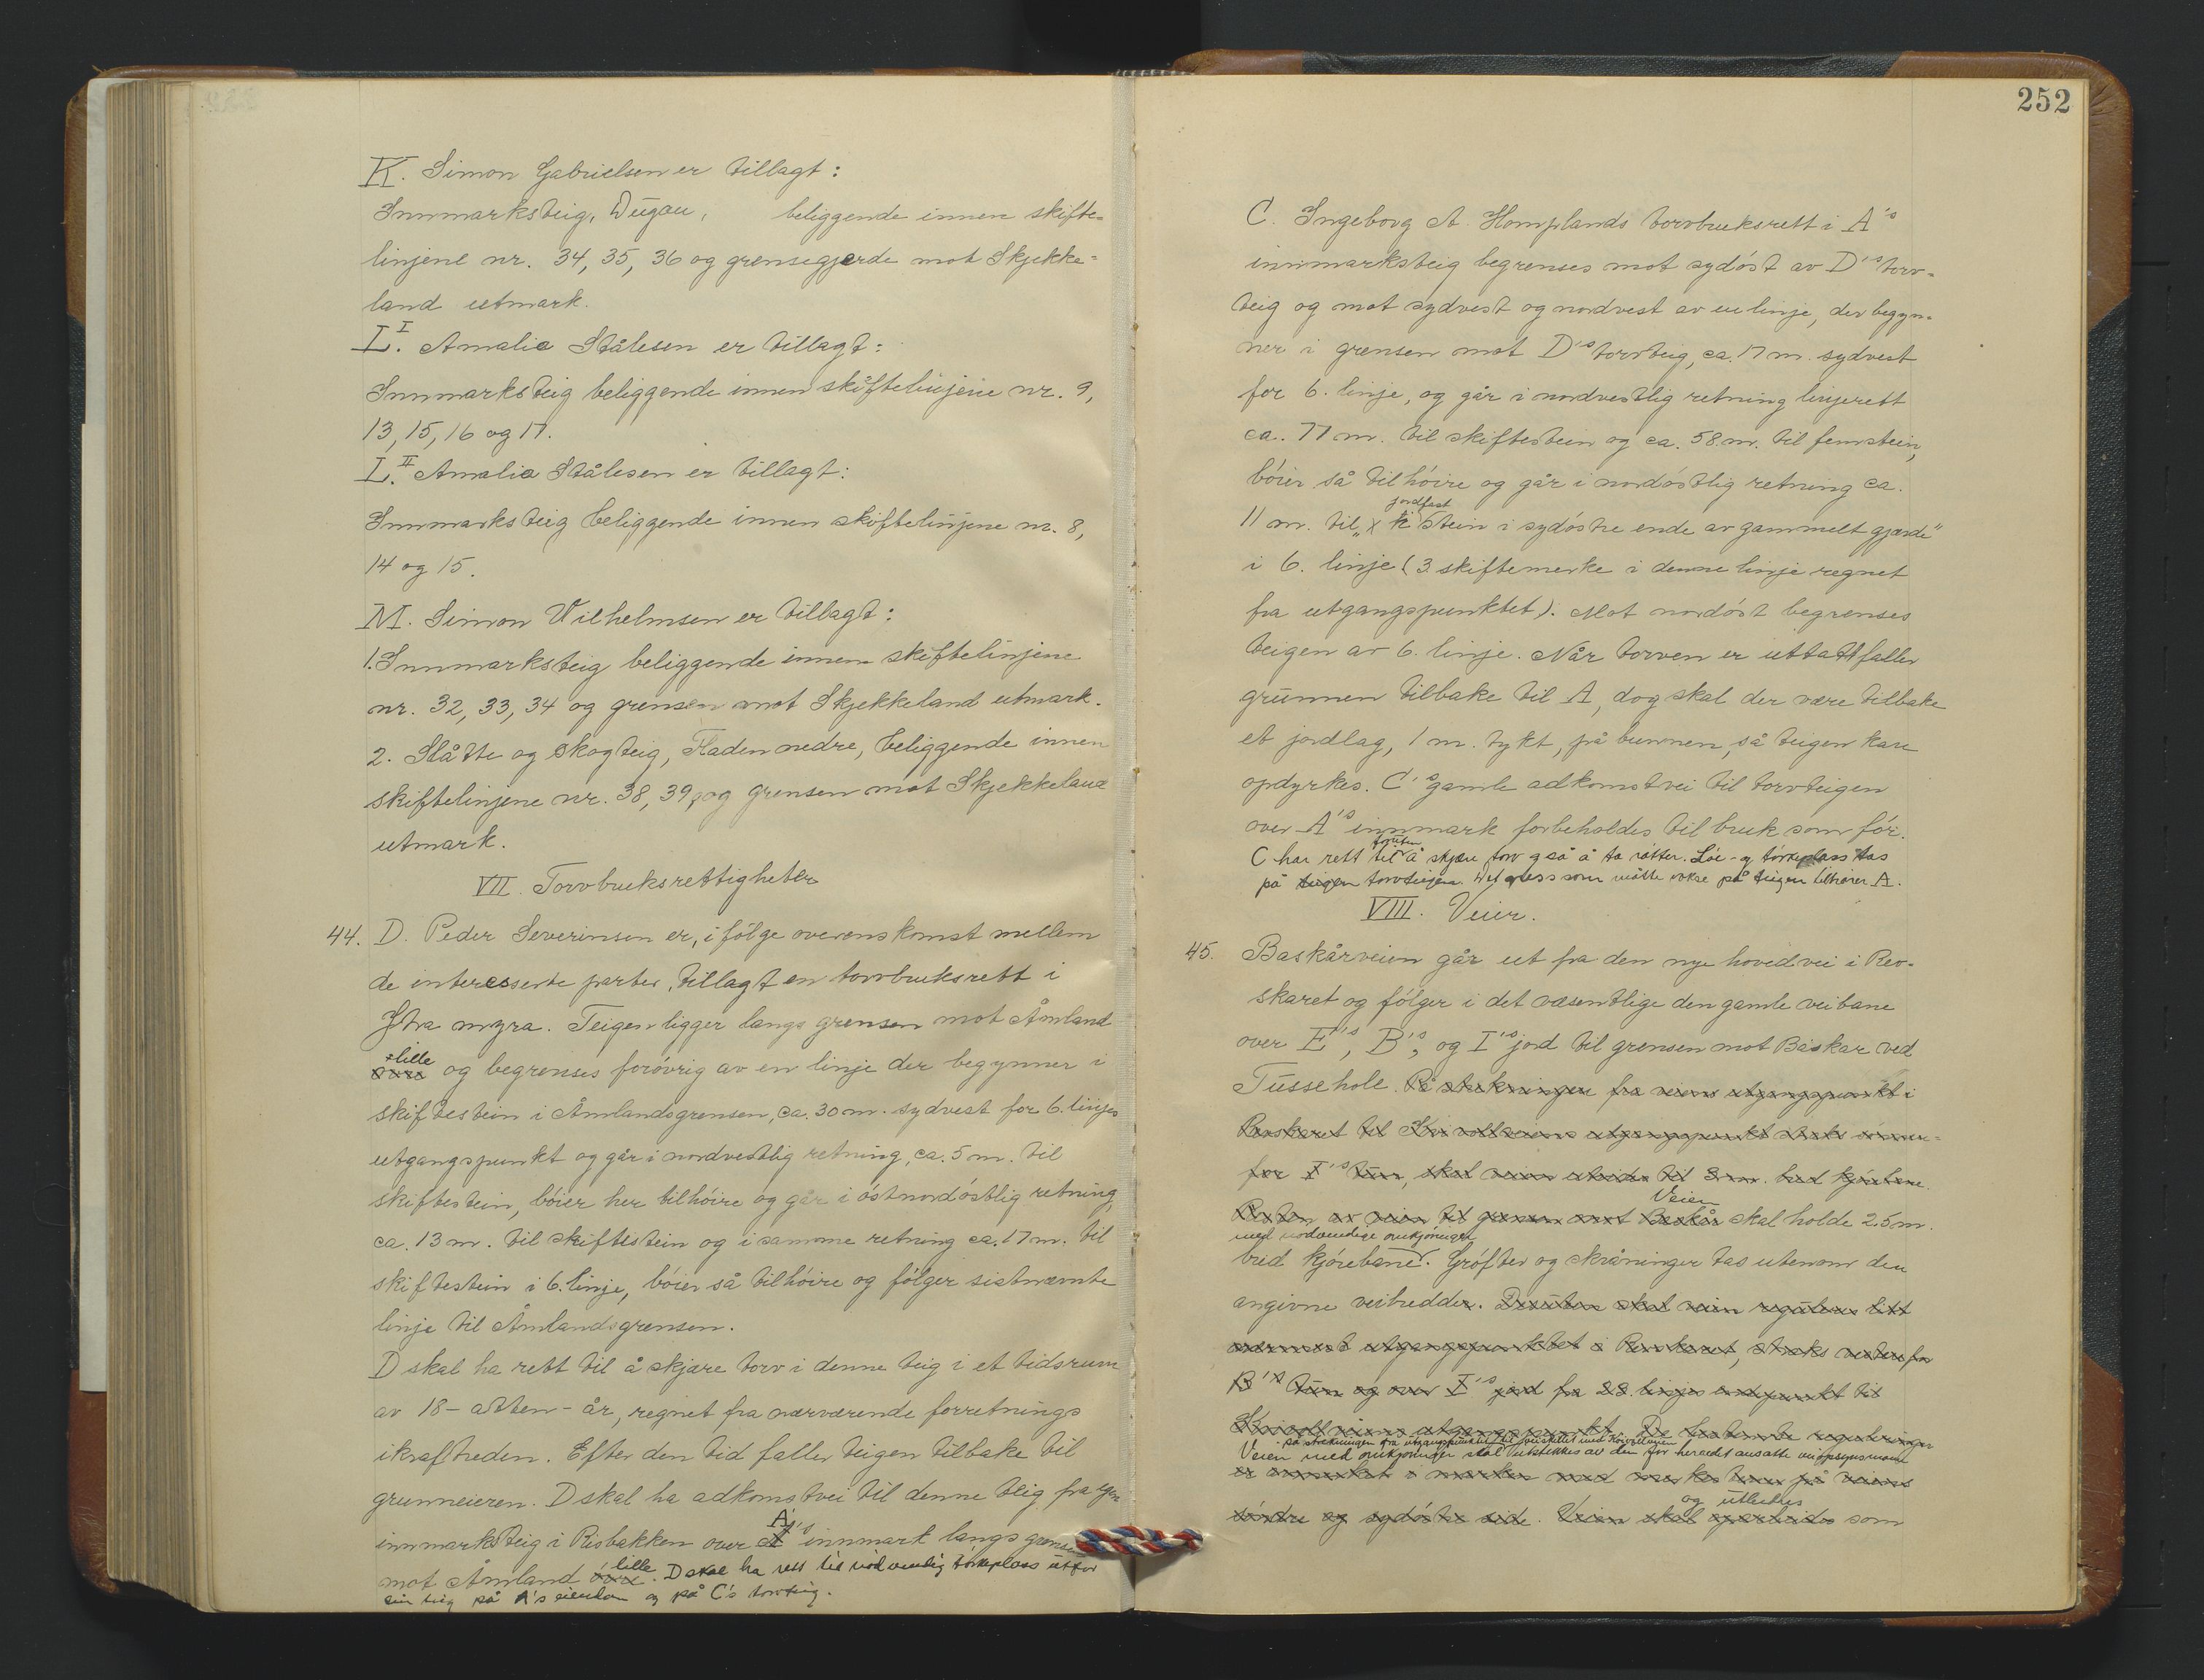 K. Simon Gabrielsen er tillagt:
Innmarksteig, Dugau, beliggende innen skifte-
linjene nr. 34, 35, 36 og grensegjerde mot Skjekke-
land utmark.
L.I Amalia Stålesen er tillagt:
Innmarksteig beliggende innen skiftelinjene nr. 9,
13, 15, 16 og 17.
L.II Amalia Stålesen er tillagt:
Innmarksteig beliggende innen skiftelinjene nr. 8,
14 og 15.
M. Simon Wilhelmsen er tillagt:
1. Innmarksteig beliggende innen skiftelinjene
nr. 32, 33, 34 og grensen mot Skjekkeland utmark.
2. Slåtte og skogteig, Fladen nedre, beliggende innen
skiftelinjene nr. 38, 39, og grensen mot Skjekkeland
utmark.
VII. Torvbruksrettigheter
44. D. Peder Severinsen er, i følge overenskomst mellem
de interesserte parter, tillagt en torvbruksrett i
myra. Teigen ligger langs grensen mot Åmland
lille
og begrenses forøvrig av en linje der begynner i
skiftestein i Åmlandsgrensen, ca. 30 m. sydvest for 6. linjes
utgangspunkt og går i nordvestlig retning, ca. 5 m. til
skiftestein, bøier her tilhøire og går i østnordøstlig retning,
ca. 13 m. til skiftestein og i samme retning ca. 17 m. til
skiftestein i 6. linje, bøier så tilhøire og følger sistnævnte
linje til Åmlandsgrensen.
D skal ha rett til å skjære torv i denne teig i et tidsrum
av 18 - atten - år, regnet fra nærværende forretnings
ikraftreden. Efter den tid faller teigen tilbake til
grunneieren. D skal ha adkomstvei til denne teig fra egen
innmarksteig i Risbakken over A's innmark langs grensen
mot Åmland lille. D skal ha rett til nødvendig tørkeplass utfor
sin teig på A's eiendom og på C's torvteig.
252
C. Ingeborg A. Homplands torvbruksrett i A's
innmarksteig begrenses mot sydøst av D's torv-
teig og mot sydvest og nordvest av en linje, der begyn-
ner i grensen mot D's torvteig, ca. 17 m. sydvest
for 6. linje, og går i nordvestlig retning linjerett
ca. 77 m. til skiftestein og ca. 58 m. til femstein,
bøier så tilhøire og går i nordøstlig retning ca.
jordfast
11 m. til „x i stein i sydøstre ende av gammelt gjærde"
i 6. linje (3. skiftemerke i denne linje regnet
fra utgangspunktet). Mot nordøst begrenses
teigen av 6. linje. Når torven er uttatt faller
grunnen tilbake til A, dog skal der være tilbake
et jordlag, 1 m. tykt, på bunnen, så teigen kan
opdyrkes. C's gamle adkomstvei til torvteigen
over A's innmark forbeholdes til bruk som før.
foruten
C har rett til å skjære torv også å ta røtter. Løe- og tørkeplass tas
på teigen torvteigen. Det gress som måtte vokse på teigen tilhører A.
VIII. Veier.
45. Baskårveien går ut fra den nye hovedvei i Rev-
skaret og følger i det væsentlige den gamle veibane
over E's, B's, og I's jord til grensen mot Baskår ved
Tussehole. På strekningen fra veiens utgangspunkt i
Revskaret til Kvivollveiens utgangspunkt straks innen-
for I's tun, skal veien utvides til 3 m. bred kjørebane.
Veien
Resten av veien til grensen mot Baskår skal holde 2.5 m.
med nødvendige omkjøringer
bred kjørebane. Grøfter og skråninger tas utenom den
angivne veibredde. Desuten skal veien reguleres litt
nærmest utgangspunktet i Revskaret, straks vestenfor
B's tun og over I's jord fra 28. linjes endepunkt til
Kvivollveiens utgangspunkt. De bestemte reguleringer
på strekningen fra utgangspunktet til veiskillet med Kvivollveien
Veien med omkjøringer skal utstikkes av den for heradet ansatte veiopsynsmann
er i marken med på veiens
søndre og sydøstre side. Veien skal opparbeides
og utbedres
som